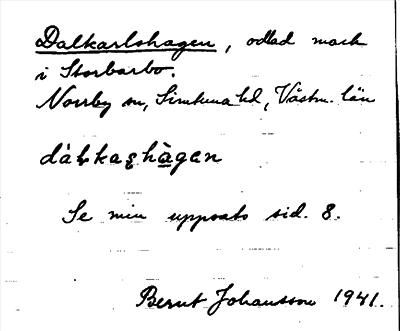 Dalkarlshagen, odlad mark
i Storbärbo.
Norrby sn, Simtuna hd, Västm. län
dàɫkaꞩhàgen
Se min uppsats sid. 8.
Bernt Johansson 1941.